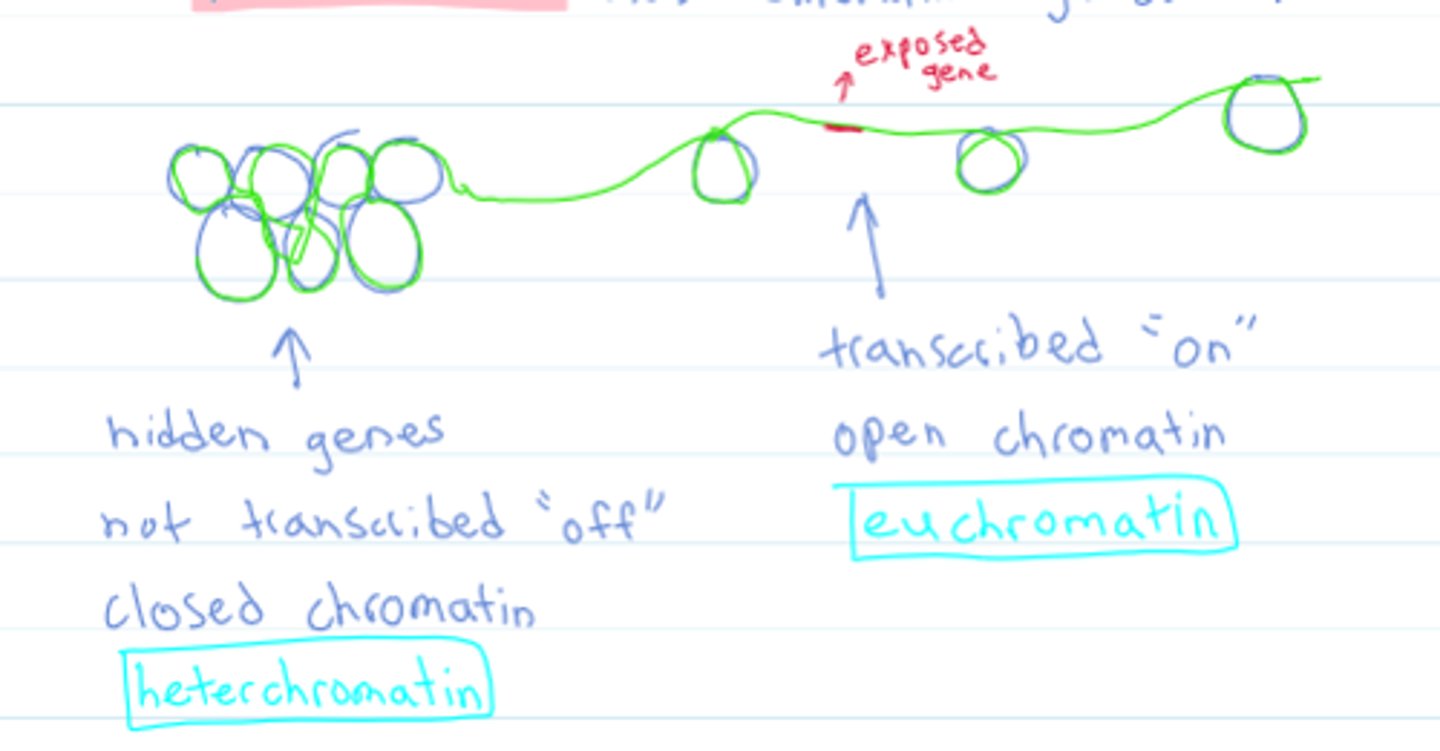 exposed
gene
transcribed "on"
open chromatin
euchromatin
hidden genes
not transcribed "off"
closed chromatin
heterchromatin